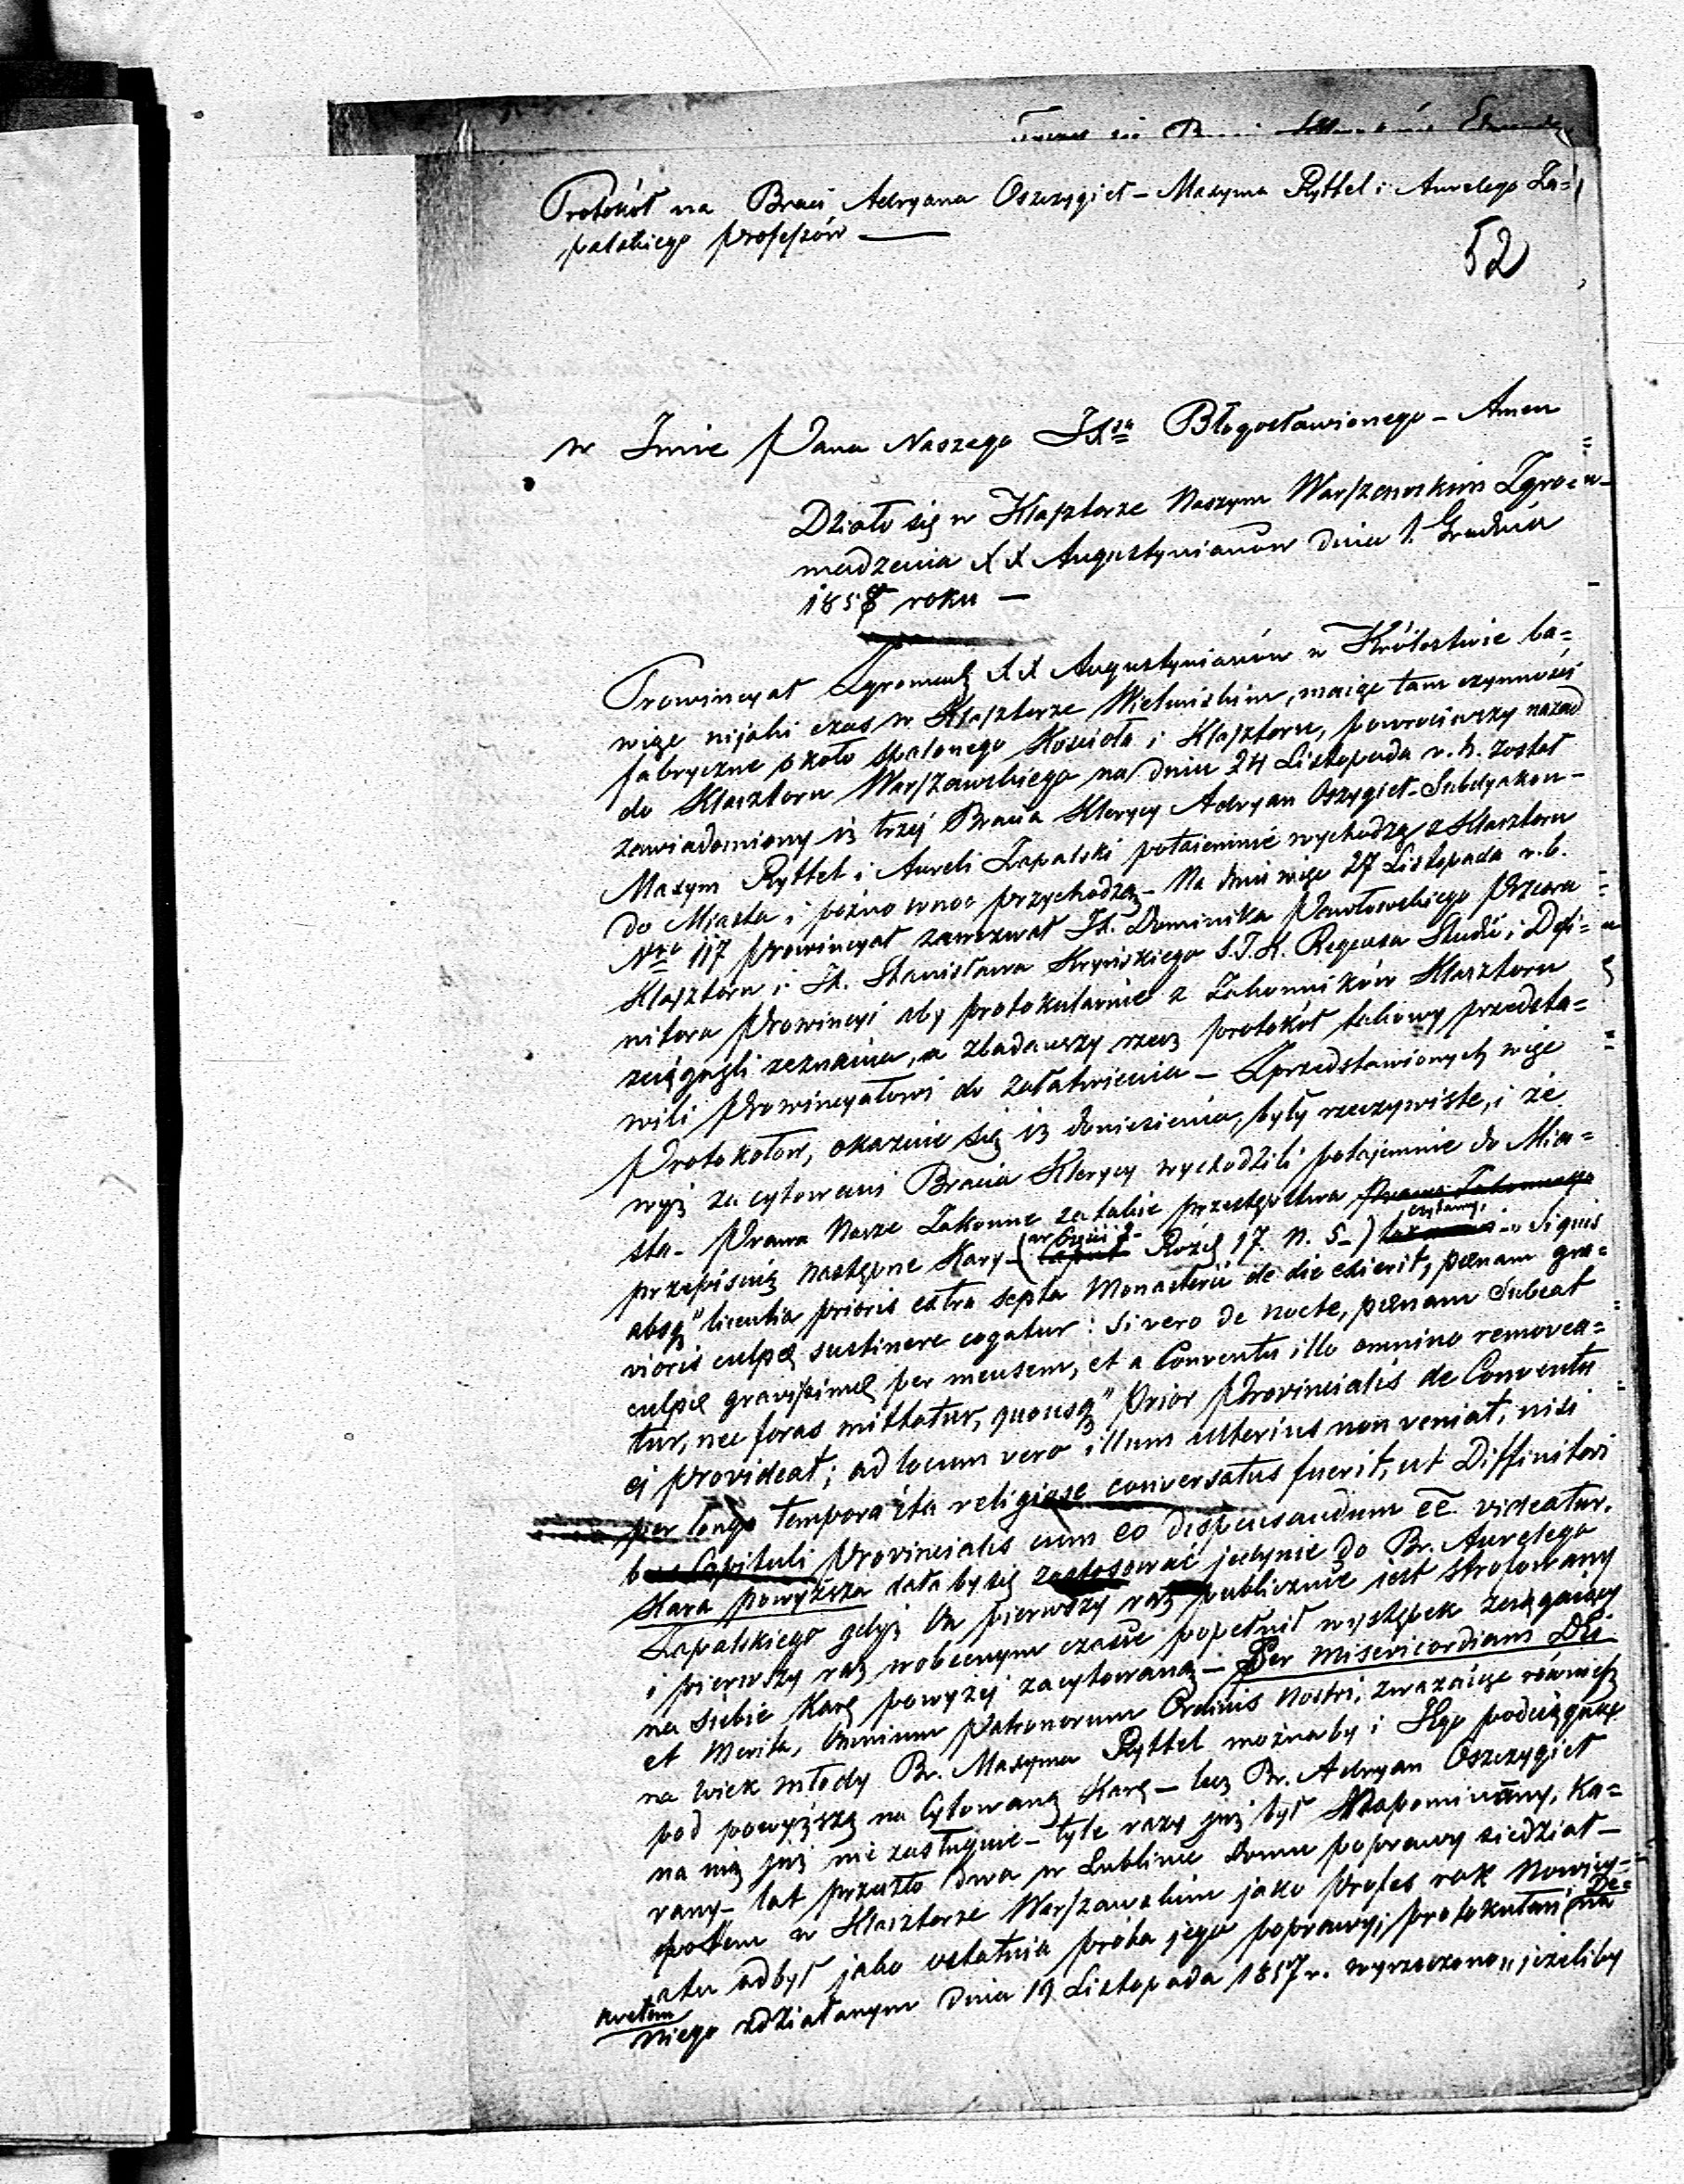 Protokół na Braci Adryana Oszczygieł – Maxyma Ryttel i Aurelego Za=
palskiego professów —
52
w Imie Pana Naszego JXsa Błogosławionego – Amen
Działo się w Klasztorze Naszym Warszawskim Zgro=
madzenia XX Augustyanów dnia 1. Grudnia
1858 roku —
Prowincyał Zgromadz XX Augustyanów w Królestwie ba=
wiąc nijaki czas w Klasztorze Wieluńskim, maiąc tam czynności
fabryczne około spalonego Kościoła i Klasztoru, powrociwszy nazad
do Klasztoru Warszawskiego na dniu 24 Listopada r. b. został
zawiadomiony iż trzej Bracia Klerycy Adryan Oszygieł – Subdyakon –
Maxym Ryttel i Aureli Zapalski potaiemnie wychodzą z Klasztoru
do Miasta i pózno wnoc przychodzą – Na dniu więc 27 Listopada r. b.
Nro 117 Prowincyał zawezwał JX. Dominika Pawłowskiego Przeora
Klasztoru i JX. Stanisława Kryńskiego S.T.L. Regensa Studii i Defi=
nitora Prowincyi aby protokularnie z Zakonników Klasztoru
ściągnęli zeznania, a zbadawszy rzecz protokół takowy przedsta=
wili Prowincyałowi do załatwienia – Z przedstawionych więc
Protokołow, okazuie się iż doniesienia, były rzeczywiste, i że
wyż zacytowani Bracia Klerycy wychodzili potajemnie do Mia=
sta – Prawa Nasze Zakonne za takie przestępstwa Prawa Zakonnego
przepisuią następne Kary – (w Części 2 Rozdz 17. N. 5 –) czytamy, „Siquis
absq" licentia prioris extra septa Monasterii de die exierit, pænam gra=
vioris culpæ sustinere cogatur: Si vero de nocte, pænam Subeat
culpæ gravissimæ per mensem, et a Conventu illo omnino removea=
tur, nec foras mittatur, quousq" Prior Provincialis de Conventu
ei provideat; ad locum vero illum ulterius non veniat, nisi
per longa tempora ita religiose conversatus fuerit, ut Diffinitori
bus Capituli Provincialis cum eo dispensandum eē videatur.
Kara powyższa dała by się zastosować jedynie do Br. Aurelego
Zapalskiego gdyż On pierwszy raz publicznie iest strofowany
i pierwszy raz wobecnym czasie popełnił występek zasięgaiący
na siebie Karę powyżej zacytowaną – Per misericordiam Dei
et Merita, Omnium Patronorum Ordinis Nostri, zważaiąc również
na wiek młody Br. Maxyma Ryttel możnaby i Jego podciągnąć
pod powyższą na Cytowaną Karę – lecz Br. Adryan Oszczygieł
na nią już nie zasługuie – tyle razy już był Napominany, Ka=
rany – lat przeszło dwa w Lublinie Domu poprawy siedział –
potem w Klasztorze Warszawskim jako Profes rok Nowicy=
atu odbył jako ostatnia próba jego poprawy; protokułem i De=
kretem na
niego zdziałanym dnia 19 Listopada 1857 r. wyrzeczono „jeżeliby